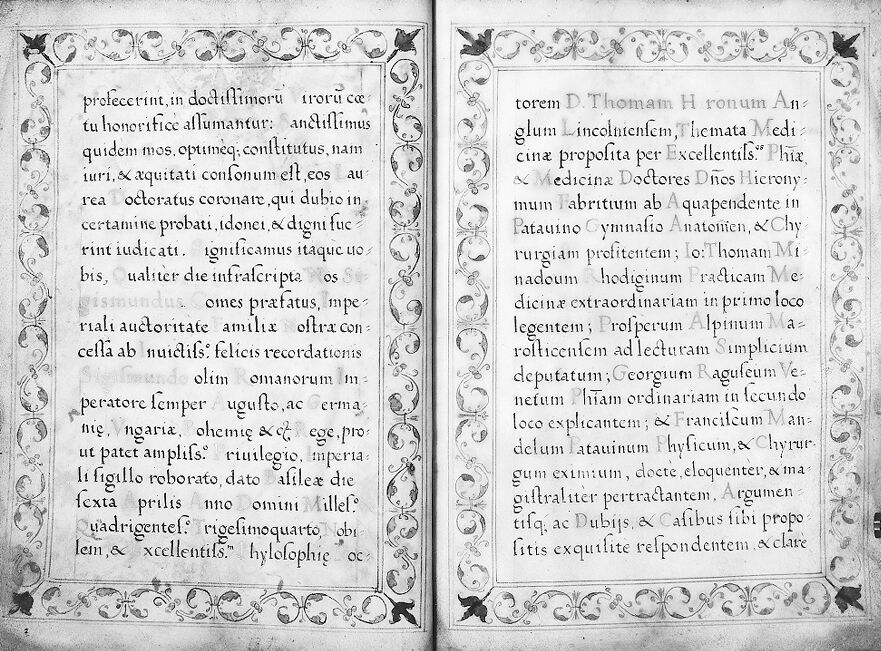 profecerint, in doctissimorũ irorũ cœ-
tu honorificè assumantur: anctissimus
quidem mos, optimèq; constitutus, nam
iuri, & æquitati consonum est, eos Lau-
rea Doctoratus coronare, qui dubio in-
certamine probati, idonei, & digni fue-
rint iudicati. ignificamus itaque uo-
bis, Qualiter die infrascripta Nos Si-
gismundus Comes præfatus, Impe-
riali auctoritate Familiæ Nostræ con-
cessa ab Inuictiss.º felicis recordationis
Sigismundo olim Romanorum Im-
peratore semper Augusto, ac Germa-
nię, Vngariæ, Bohemię &cȝ Rege, pro-
ut patet ampliss.º Priuilegio, Imperia-
li sigillo roborato, dato Basileæ die
sexta Aprilis Anno Domini Milless.º
Quadrigentes.º Trigesimoquarto, Nobi-
lem, & xcellentiss.ᵐ hylosophię oc-
torem D. Thomam H ronum An-
glum Lincolniensem, Themata Medi-
cinæ proposita per Excellentiss.ᵒˢ Phiæ,
& Medicinæ Doctores Dños Hierony-
mum Fabritium ab Aquapendente in
Patauino Gymnasio Anatomen, & Chy-
rurgiam profitentem; Io: Thomam Mi-
nadoum Rhodiginum Practicam Me-
dicinæ extraordinariam in primo loco
legentem; Prosperum Alpinum Ma-
rosticensem ad lecturam Simplicium
deputatum; Georgium Raguseum Ve-
netum Phiam ordinariam in secundo
loco explicantem; & Franciscum Man-
delum Patauinum Physicum, & Chyrur-
gum eximium, doctè, eloquenter, & ma-
gistraliter pertractantem, Argumen-
tisq; ac Dubijs, & Casibus sibi propo-
sitis exquisitè respondentem, & clarè